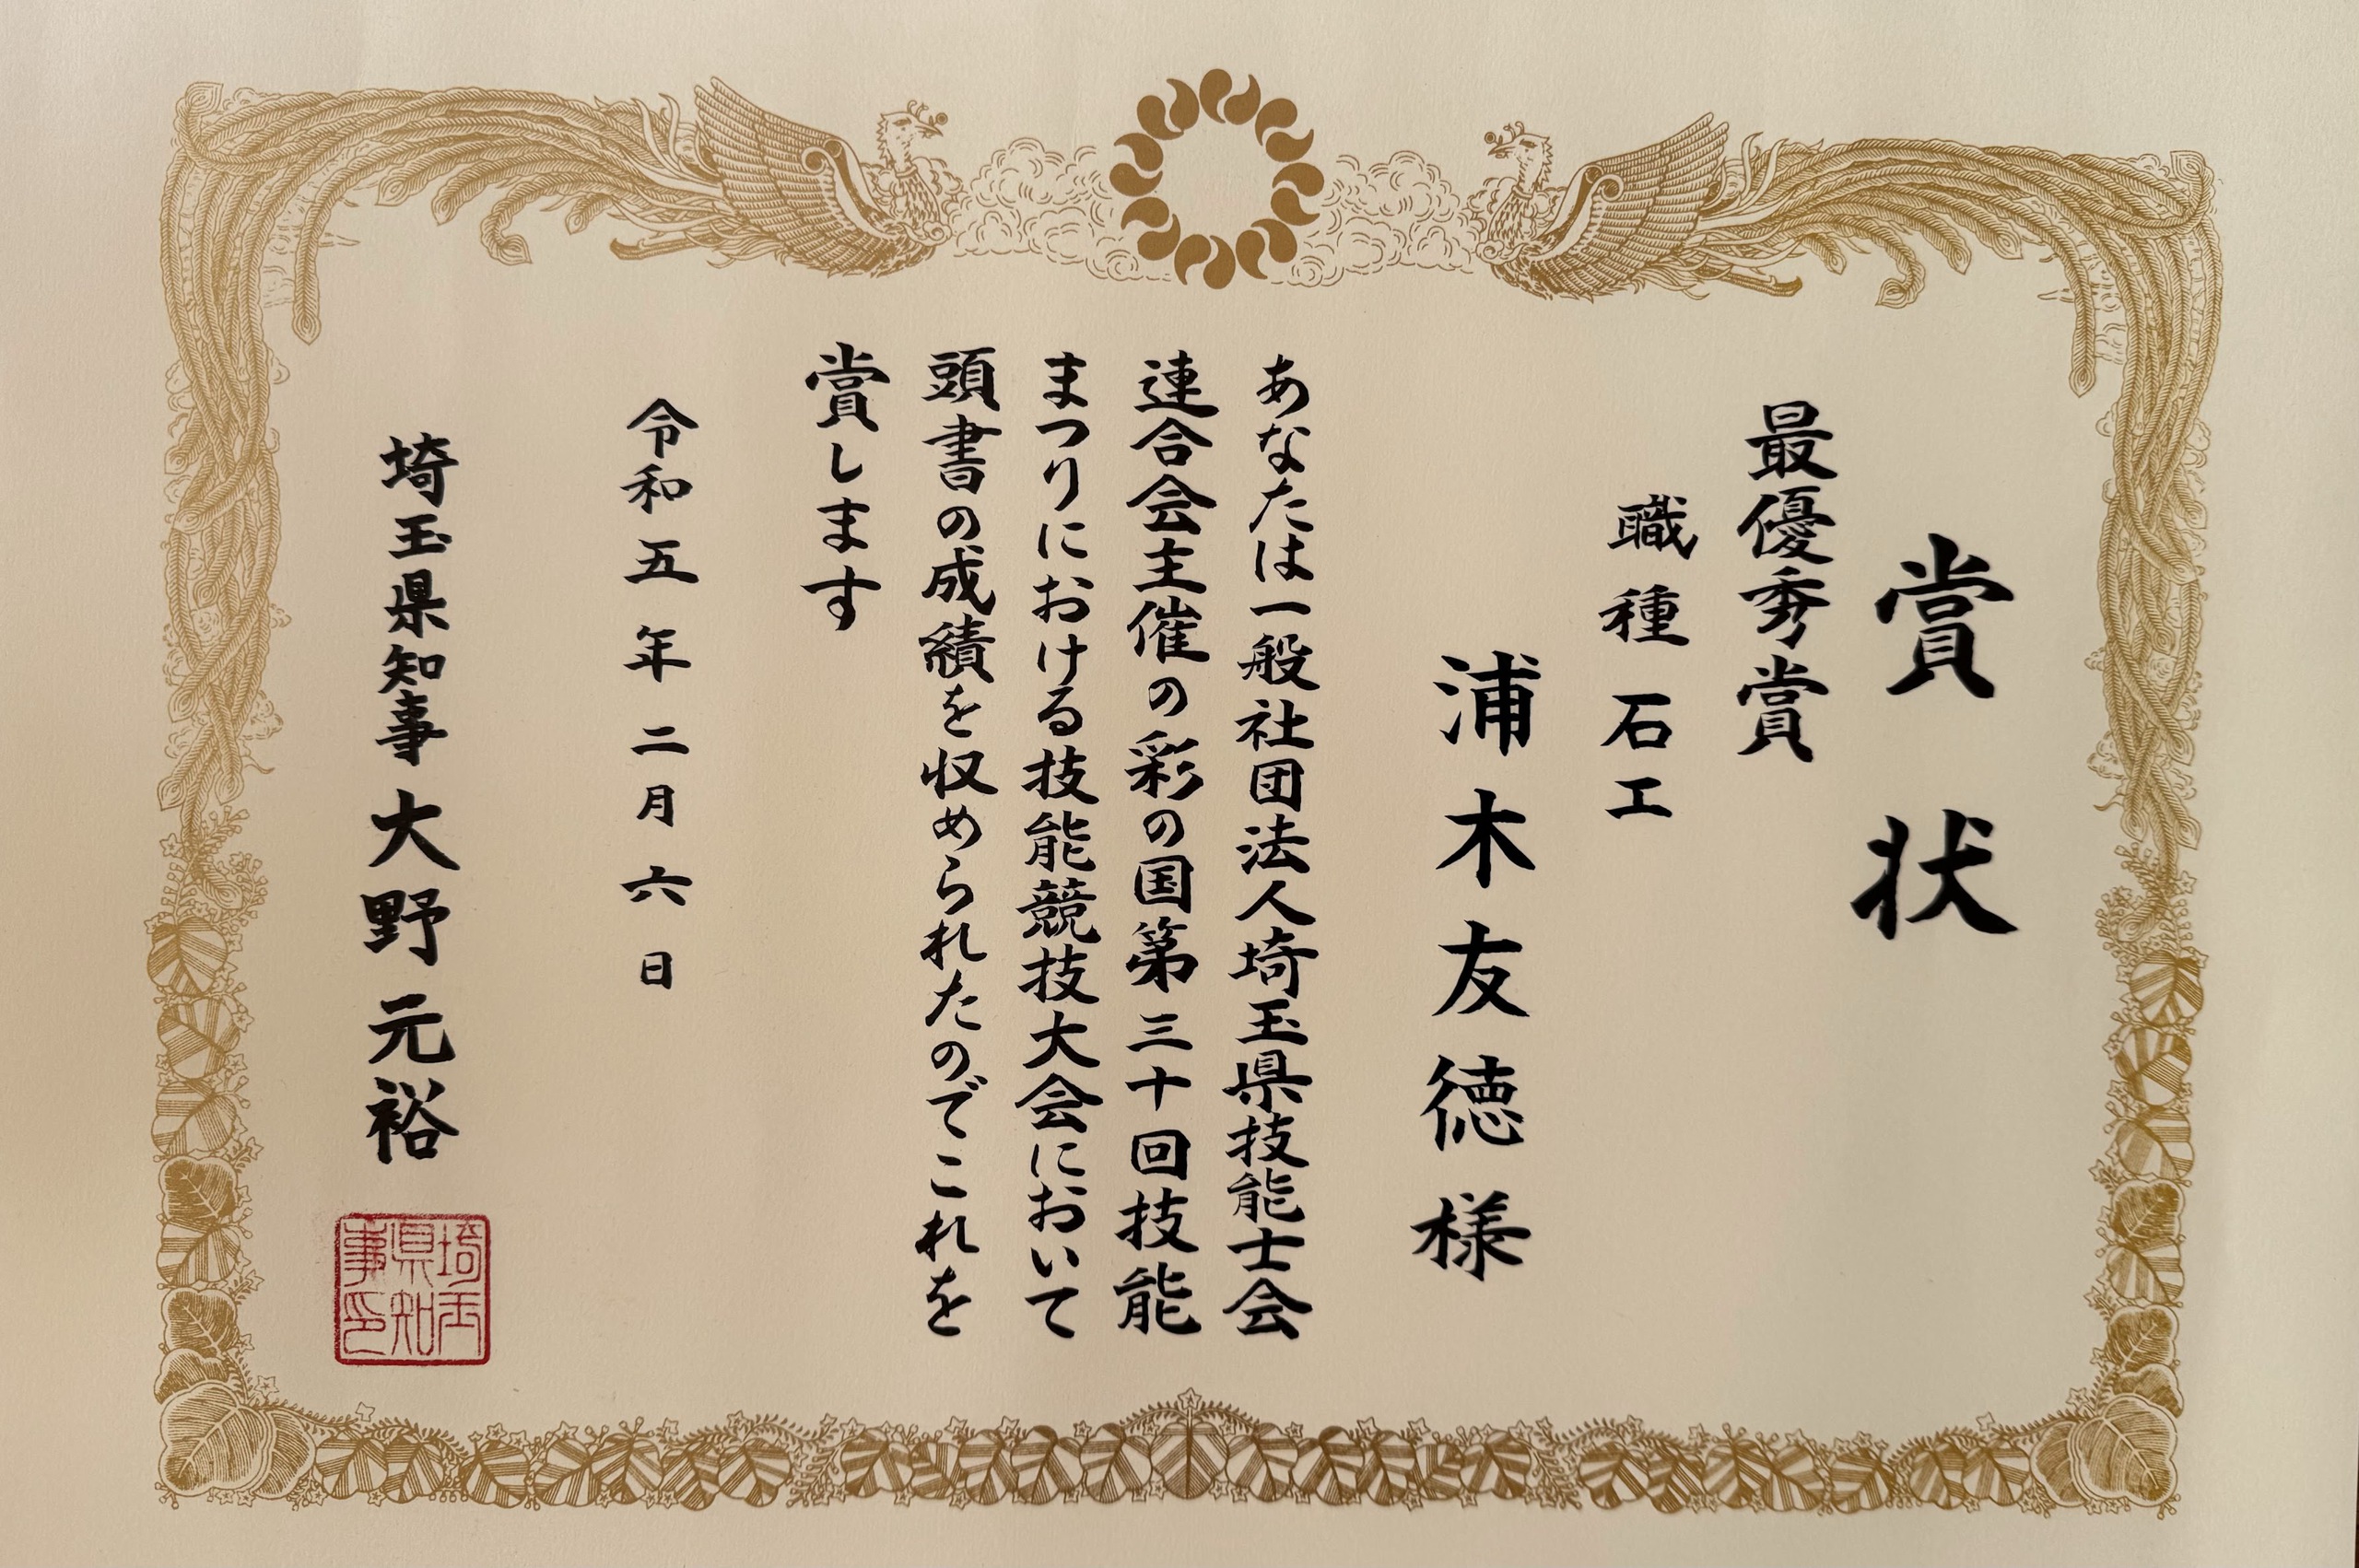 賞状
最優秀賞
職種 石工
浦木友徳様
あなたは一般社団法人埼玉県技能士会
連合会主催の彩の国第三十回技能
まつりにおける技能競技大会において
頭書の成績を収められたのでこれを
賞します
令和五年二月六日
埼玉県知事 大野元裕
埼玉
県知
事印